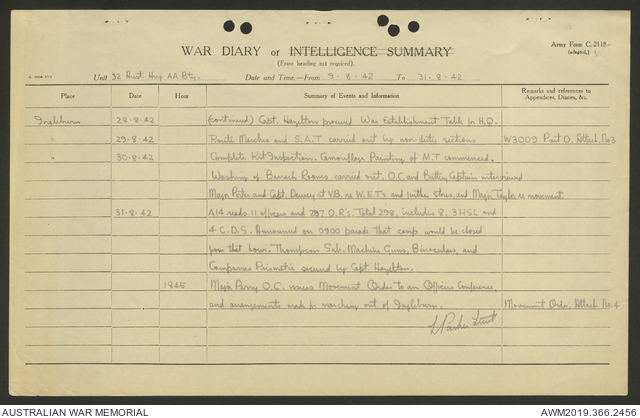 WAR DIARY or INTELLIGENCE SUMMARY
(Erase heading not required).
Army Form C. 2118
(adapted.)
Unit 32 Aust. Hvy AA Bty. Date and Time.—From 9.8.42 To 31.8.42
Place Date Hour Summary of Events and Information Remarks and references to Appendices, Diaries, &c.
Ingleburn 28.8.42 (continued) Capt. Hazelton procured War Establishment Table fr H.Q.
" 29.8.42 Route Marches and S.A.T carried out by non-duty sections W3009 Part D. Attach. No 3
" 30.8.42 Complete Kit Inspection. Camouflage Painting of M.T commenced.
Washing of Barrack Rooms carried out. O.C and Battery Captain interviewed
Major and Capt. at V.B. re W.E.T's and further stores, and Major Taylor re movement.
31.8.42 A14 reads 11 officers and 287 O.R's. Total 298, includes 8, 3 HSL and
4 C.D.S. Announced on 0900 parade that camp would be closed
from that hour. Thompson Sub. Machine Guns, Binoculars, and
Compasses Prismatic secured by Capt. Hazelton.
1845 Major Perry O.C. issues Movement Order to an Officers Conference,
and arrangements made for marching out of Ingleburn. Movement Order. Attach No. 4
AUSTRALIAN WAR MEMORIAL
AWM2019.366.2456